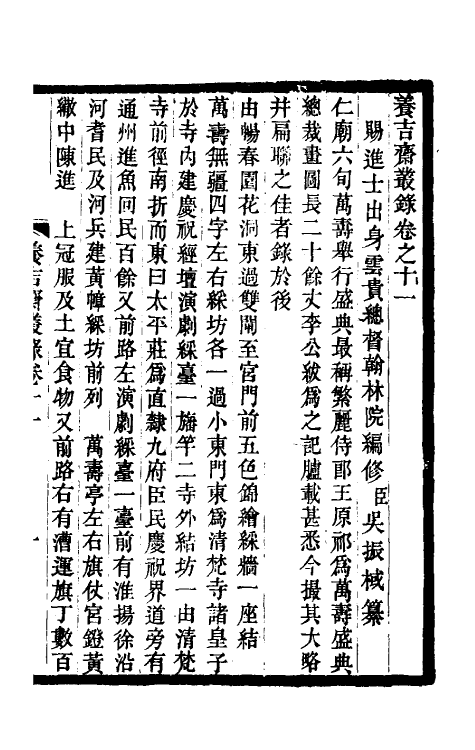 養吉齋叢錄卷之十一
賜進士出身雲貴總督翰林院編修臣吳振棫纂
仁廟六旬萬壽舉行盛典最稱繁麗侍郎王原祁爲萬壽盛典
總裁畫圖長二十餘丈李公紱爲之記臚載甚悉今撮其大略
幷扁聯之佳者錄於後
由暢春園花洞東過雙閘至宮門前五色錦繪綵牆一座結
萬壽無疆四字左右綵坊各一過小東門東爲清梵寺諸皇子
於寺內建慶祝經壇演劇綵臺一旛竿二寺外結坊一由清梵
寺前徑南折而東曰太平莊爲直隸九府臣民慶祝界道旁有
通州進魚回民百餘又前路左演劇綵臺一臺前有淮揚徐沿
河耆民及河兵建黃幛綵坊前列　萬壽亭左右旗仗宮鐙黃
繖中陳進　上冠服及土宜食物又前路右有漕運旗丁數百
養吉齋叢錄卷十一　一